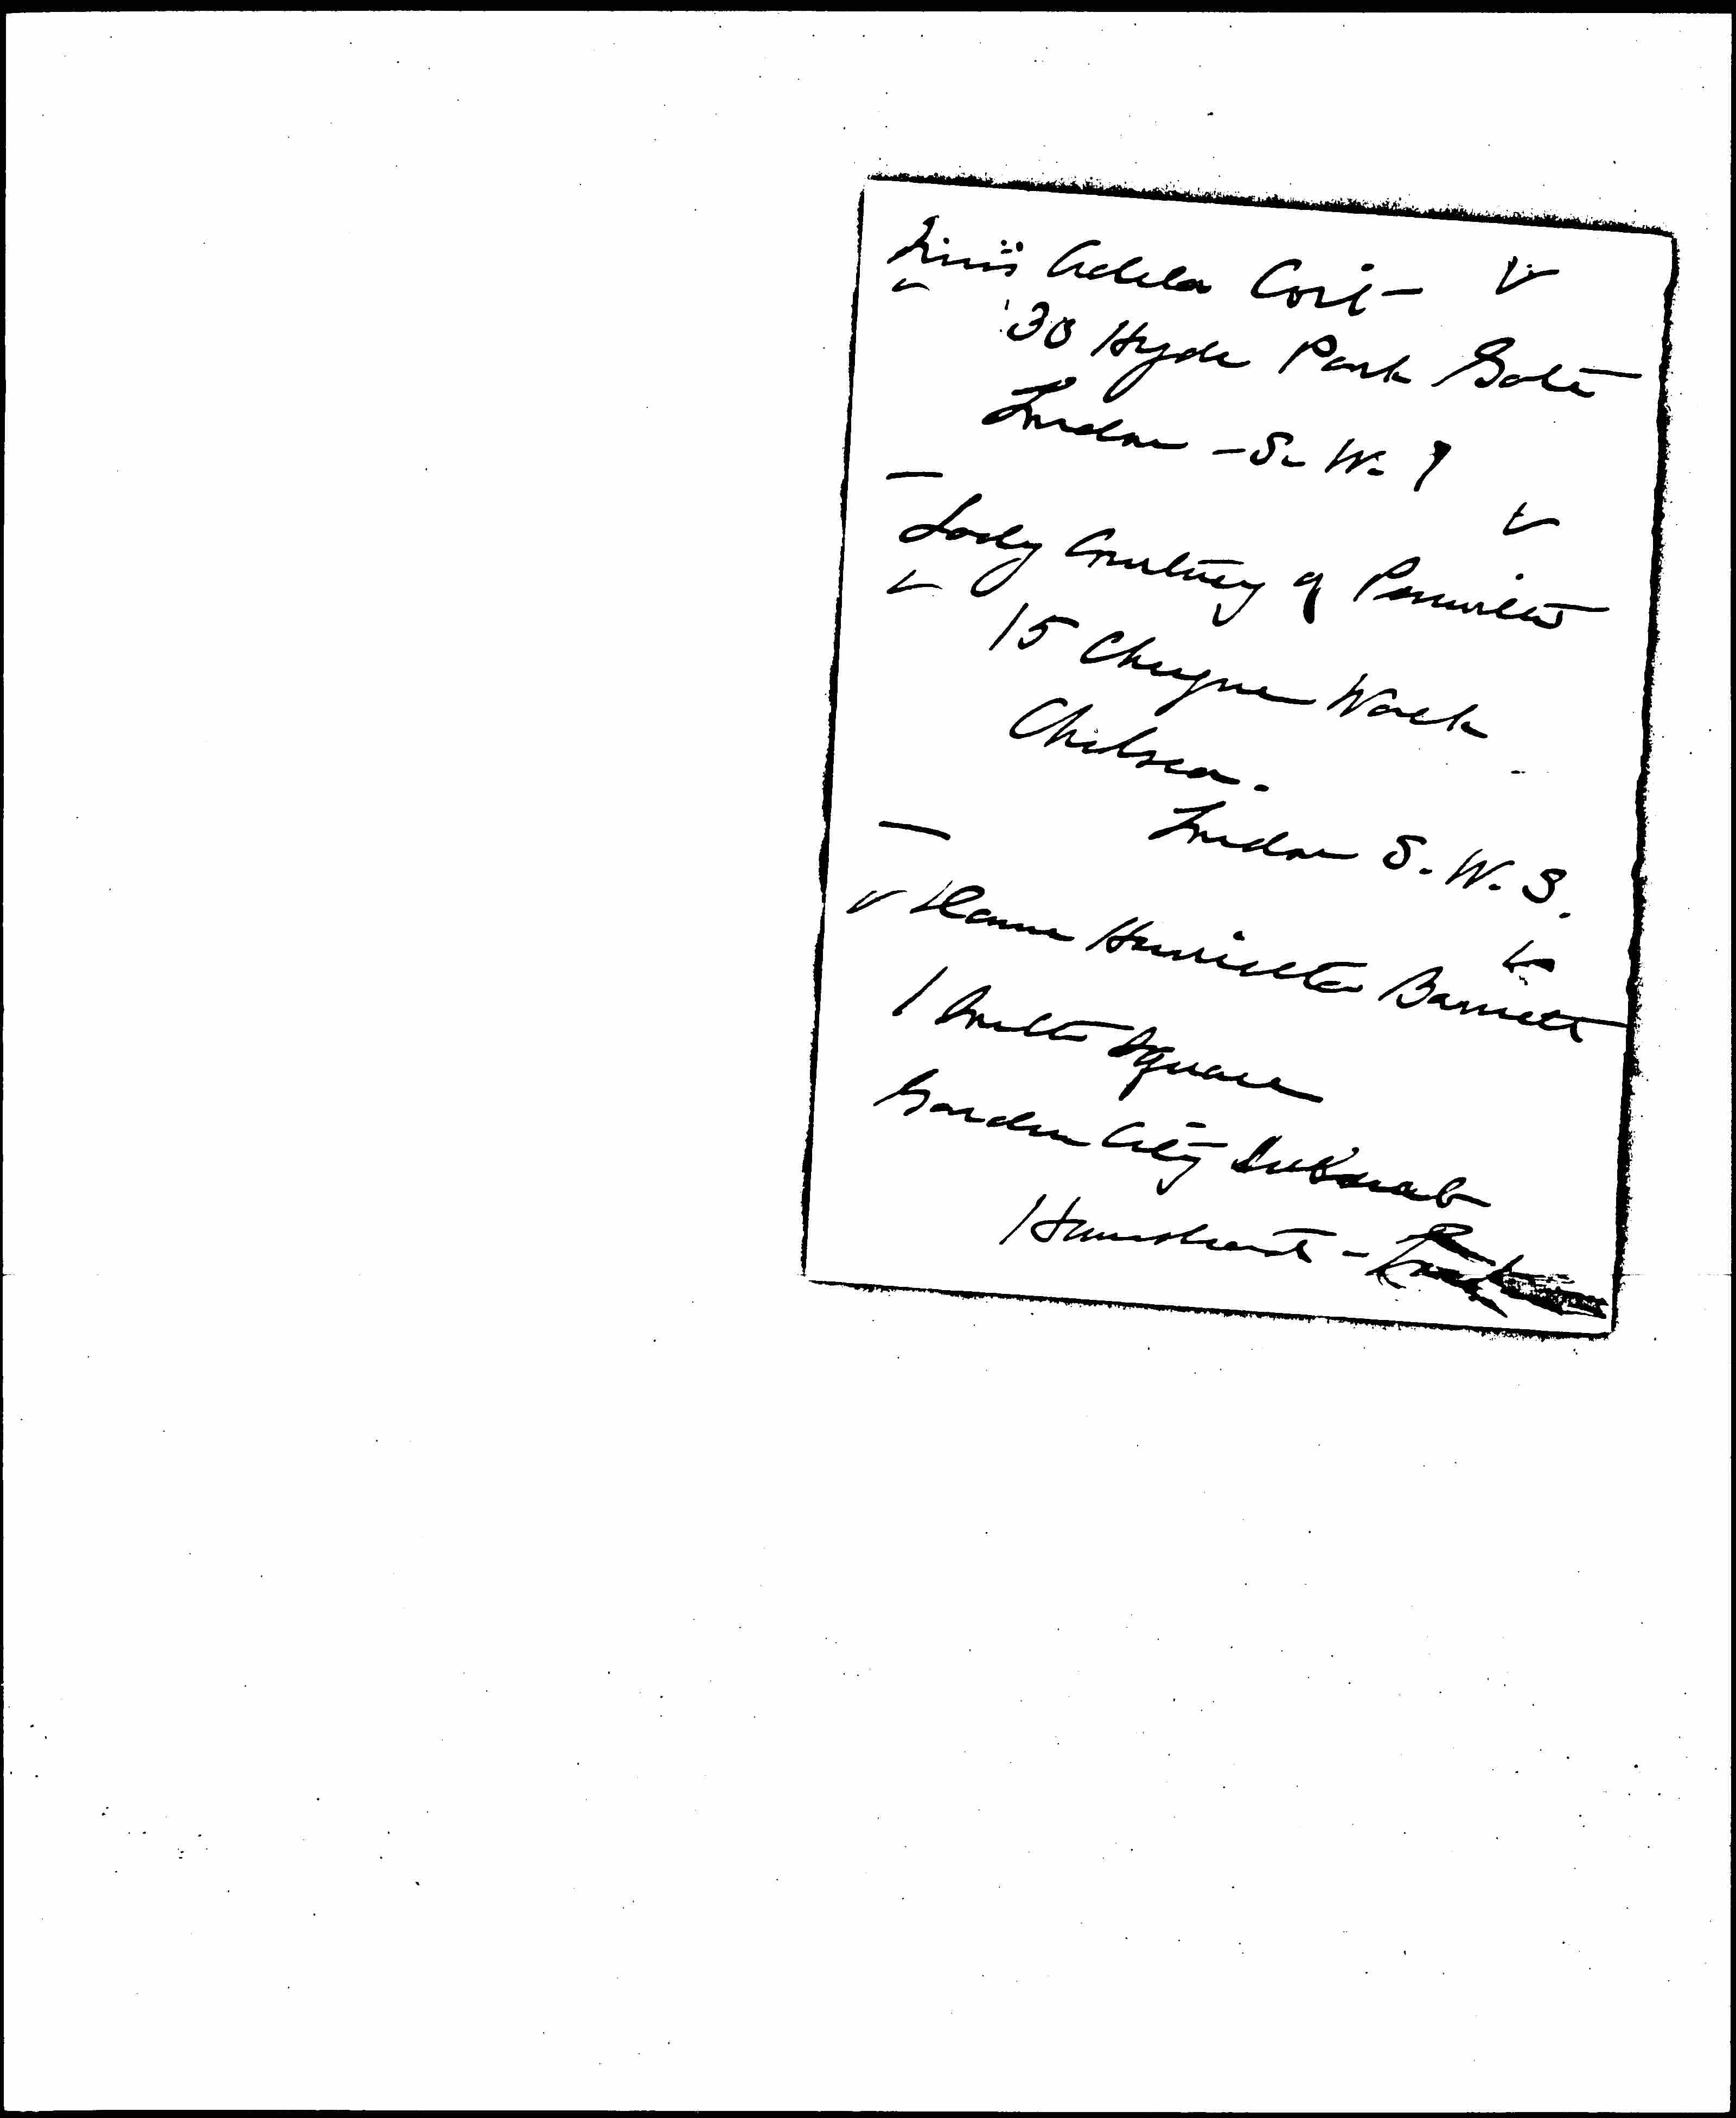 Miss Adela Coit - ✓
✓
30 Hyde Park Gate
London - S. W. 7
—
✓
Lady Courtney of Penwith
✓
15 Cheyne Walk
Chelsea.
London S. W. 3.
—
✓ Dame Henrietta Barnett ✓
1 South Square
Garden City Suburb
Hampstead -